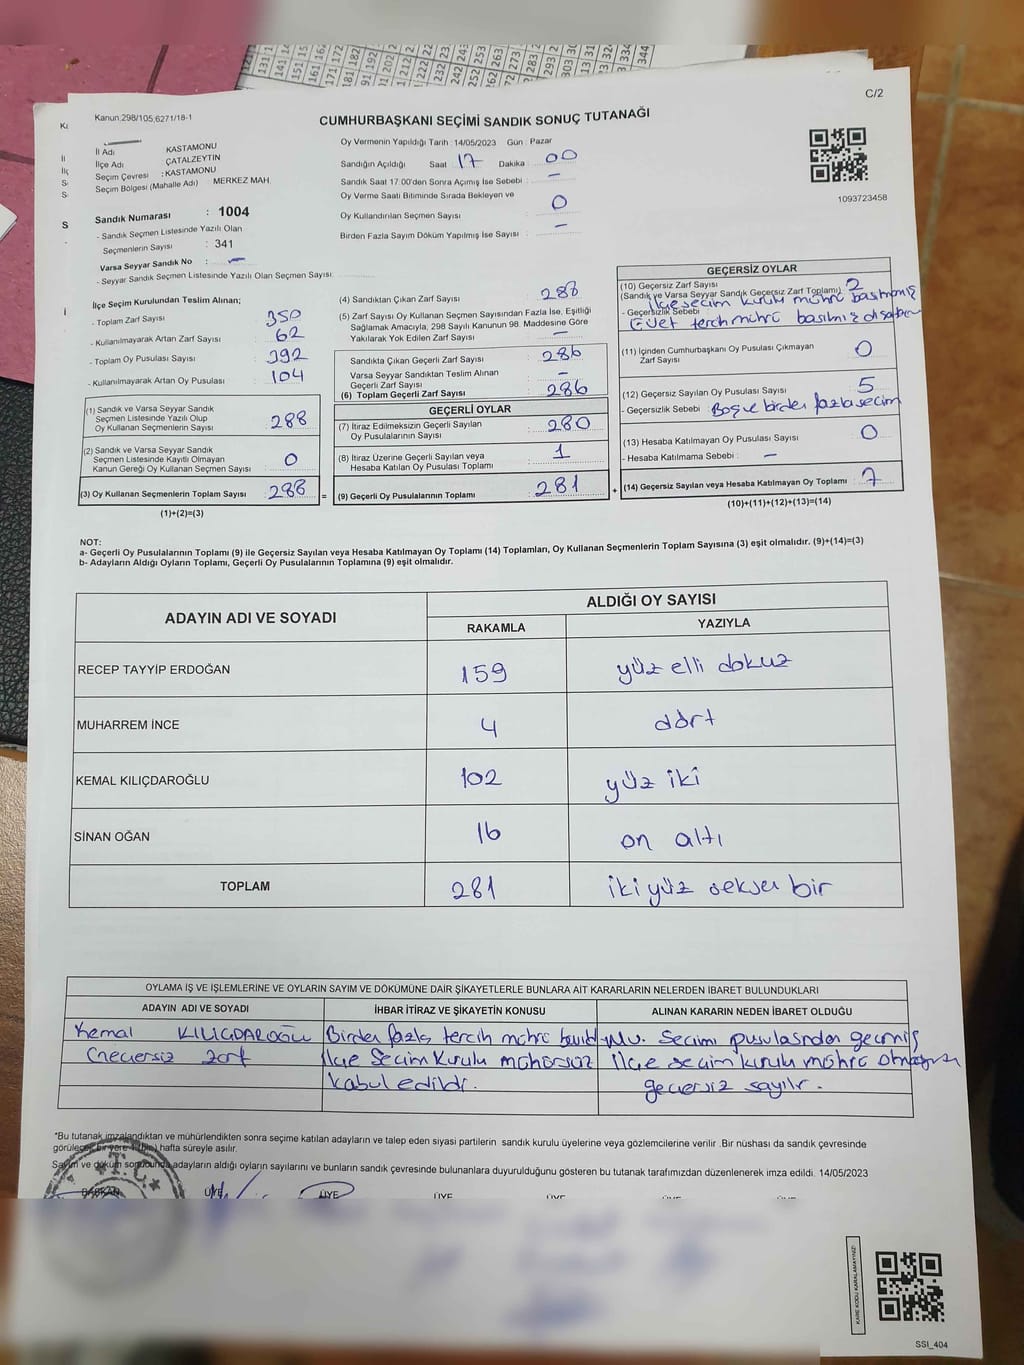 C/2
Kanun:298/105;6271/18-1
CUMHURBAŞKANI SEÇİMİ SANDIK SONUÇ TUTANAĞI
İl Adı : KASTAMONU
İlçe Adı : ÇATALZEYTİN
Seçim Çevresi : KASTAMONU
Seçim Bölgesi (Mahalle Adı) : MERKEZ MAH.
Sandık Numarası : 1004
- Sandık Seçmen Listesinde Yazılı Olan
Seçmenlerin Sayısı : 341
Varsa Seyyar Sandık No : -
- Seyyar Sandık Seçmen Listesinde Yazılı Olan Seçmen Sayısı:
Oy Vermenin Yapıldığı Tarih :14/05/2023 Gün : Pazar
Sandığın Açıldığı Saat 17 Dakika : 00
Sandık Saat 17:00'den Sonra Açımış İse Sebebi : -
Oy Verme Saati Bitiminde Sırada Bekleyen ve
Oy Kullandırılan Seçmen Sayısı : 0
Birden Fazla Sayım Döküm Yapılmış İse Sayısı : -
1093723458
İlçe Seçim Kurulundan Teslim Alınan;
- Toplam Zarf Sayısı : 350
- Kullanılmayarak Artan Zarf Sayısı : 62
- Toplam Oy Pusulası Sayısı : 392
- Kullanılmayarak Artan Oy Pusulası : 104
(1) Sandık ve Varsa Seyyar Sandık
Seçmen Listesinde Yazılı Olup
Oy Kullanan Seçmenlerin Sayısı : 288
(2) Sandık ve Varsa Seyyar Sandık
Seçmen Listesinde Kayıtlı Olmayan
Kanun Gereği Oy Kullanan Seçmen Sayısı : 0
(3) Oy Kullanan Seçmenlerin Toplam Sayısı : 288 =
(1)+(2)=(3)
(4) Sandıktan Çıkan Zarf Sayısı : 288
(5) Zarf Sayısı Oy Kullanan Seçmen Sayısından Fazla İse, Eşitliği
Sağlamak Amacıyla, 298 Sayılı Kanunun 98. Maddesine Göre
Yakılarak Yok Edilen Zarf Sayısı : -
Sandıkta Çıkan Geçerli Zarf Sayısı : 286
Varsa Seyyar Sandıktan Teslim Alınan
Geçerli Zarf Sayısı : -
(6) Toplam Geçerli Zarf Sayısı : 286
GEÇERLİ OYLAR
(7) İtiraz Edilmeksizin Geçerli Sayılan
Oy Pusulalarının Sayısı : 280
(8) İtiraz Üzerine Geçerli Sayılan veya
Hesaba Katılan Oy Pusulası Toplamı : 1
(9) Geçerli Oy Pusulalarının Toplamı : 281 +
GEÇERSİZ OYLAR
(10) Geçersiz Zarf Sayısı
(Sandık ve Varsa Seyyar Sandık Geçersiz Zarf Toplamı) : 2
ilçe seçim kurulu mührü basılmamış
- Geçersizlik Sebebi
Evet tercih mührü basılmış
(11) İçinden Cumhurbaşkanı Oy Pusulası Çıkmayan
Zarf Sayısı : 0
(12) Geçersiz Sayılan Oy Pusulası Sayısı : 5
- Geçersizlik Sebebi : birden fazla seçim
(13) Hesaba Katılmayan Oy Pusulası Sayısı : 0
- Hesaba Katılmama Sebebi : -
(14) Geçersiz Sayılan veya Hesaba Katılmayan Oy Toplamı : 7
(10)+(11)+(12)+(13)=(14)
NOT:
a- Geçerli Oy Pusulalarının Toplamı (9) ile Geçersiz Sayılan veya Hesaba Katılmayan Oy Toplamı (14) Toplamları, Oy Kullanan Seçmenlerin Toplam Sayısına (3) eşit olmalıdır. (9)+(14)=(3)
b- Adayların Aldığı Oyların Toplamı, Geçerli Oy Pusulalarının Toplamına (9) eşit olmalıdır.
ADAYIN ADI VE SOYADI ALDIĞI OY SAYISI
RAKAMLA YAZIYLA
RECEP TAYYİP ERDOĞAN 159 yüz elli dokuz
MUHARREM İNCE 4 dört
KEMAL KILIÇDAROĞLU 102 yüz iki
SİNAN OĞAN 16 on altı
TOPLAM 281 iki yüz seksen bir
OYLAMA İŞ VE İŞLEMLERİNE VE OYLARIN SAYIM VE DÖKÜMÜNE DAİR ŞİKAYETLERLE BUNLARA AİT KARARLARIN NELERDEN İBARET BULUNDUKLARI
ADAYIN ADI VE SOYADI İHBAR İTİRAZ VE ŞİKAYETİN KONUSU ALINAN KARARIN NEDEN İBARET OLDUĞU
Kemal KILIÇDAROĞLU Birden fazla tercih mührü Seçimi pusulasından geçmiş
Geçersiz zarf İlçe Seçim Kurulu mühürsüz İlçe seçim kurulu mührü
kabul edildi. geçersiz sayılır.
*Bu tutanak imzalandıktan ve mühürlendikten sonra seçime katılan adayların ve talep eden siyasi partilerin sandık kurulu üyelerine veya gözlemcilerine verilir .Bir nüshası da sandık çevresinde
görülecek bir yere 1 (bir) hafta süreyle asılır.
Sayım ve döküm sonucunda adayların aldığı oyların sayılarını ve bunların sandık çevresinde bulunanlara duyurulduğunu gösteren bu tutanak tarafımızdan düzenlenerek imza edildi. 14/05/2023
BAŞKAN ÜYE ÜYE ÜYE ÜYE
KARE KODU KARALAMAYINIZ!
SSI_404